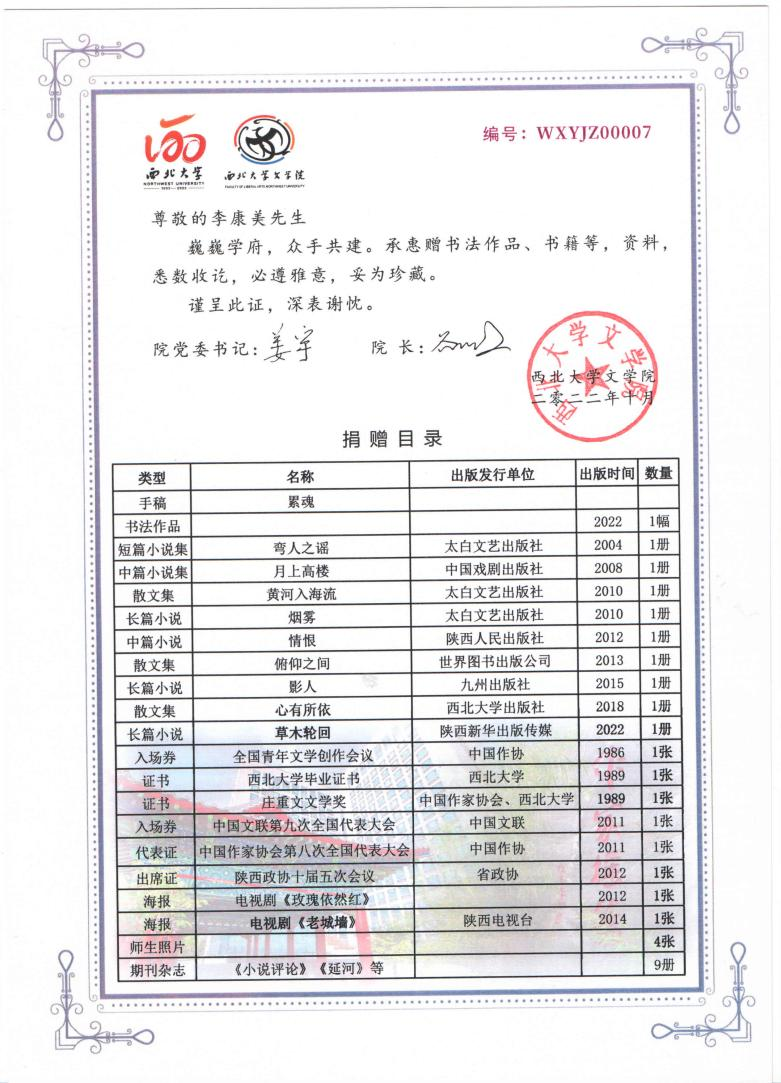 编号：WXYJZ00007
西北大学
NORTHWEST UNIVERSITY
1902—2022
西北大学文学院
FACULTY OF LIBERAL ARTS NORTHWEST UNIVERSITY
尊敬的李康美先生
巍巍学府，众手共建。承惠赠书法作品、书籍等，资料，
悉数收讫，必遵雅意，妥为珍藏。
谨呈此证，深表谢忱。
院党委书记：姜宇 院 长：
西北大学文学院
西北大学文学院
二零二二年十月
捐赠目录
类型 名称 出版发行单位 出版时间 数量
手稿 累魂
书法作品 2022 1幅
短篇小说集 弯人之谣 太白文艺出版社 2004 1册
中篇小说集 月上高楼 中国戏剧出版社 2008 1册
散文集 黄河入海流 太白文艺出版社 2010 1册
长篇小说 烟雾 太白文艺出版社 2010 1册
中篇小说 情恨 陕西人民出版社 2012 1册
散文集 俯仰之间 世界图书出版公司 2013 1册
长篇小说 影人 九州出版社 2015 1册
散文集 心有所依 西北大学出版社 2018 1册
长篇小说 草木轮回 陕西新华出版传媒 2022 1册
入场券 全国青年文学创作会议 中国作协 1986 1张
证书 西北大学毕业证书 西北大学 1989 1张
证书 庄重文文学奖 中国作家协会、西北大学 1989 1张
入场券 中国文联第九次全国代表大会 中国文联 2011 1张
代表证 中国作家协会第八次全国代表大会 中国作协 2011 1张
出席证 陕西政协十届五次会议 省政协 2012 1张
海报 电视剧《玫瑰依然红》 2012 1张
海报 电视剧《老城墙》 陕西电视台 2014 1张
师生照片 4张
期刊杂志 《小说评论》《延河》等 9册